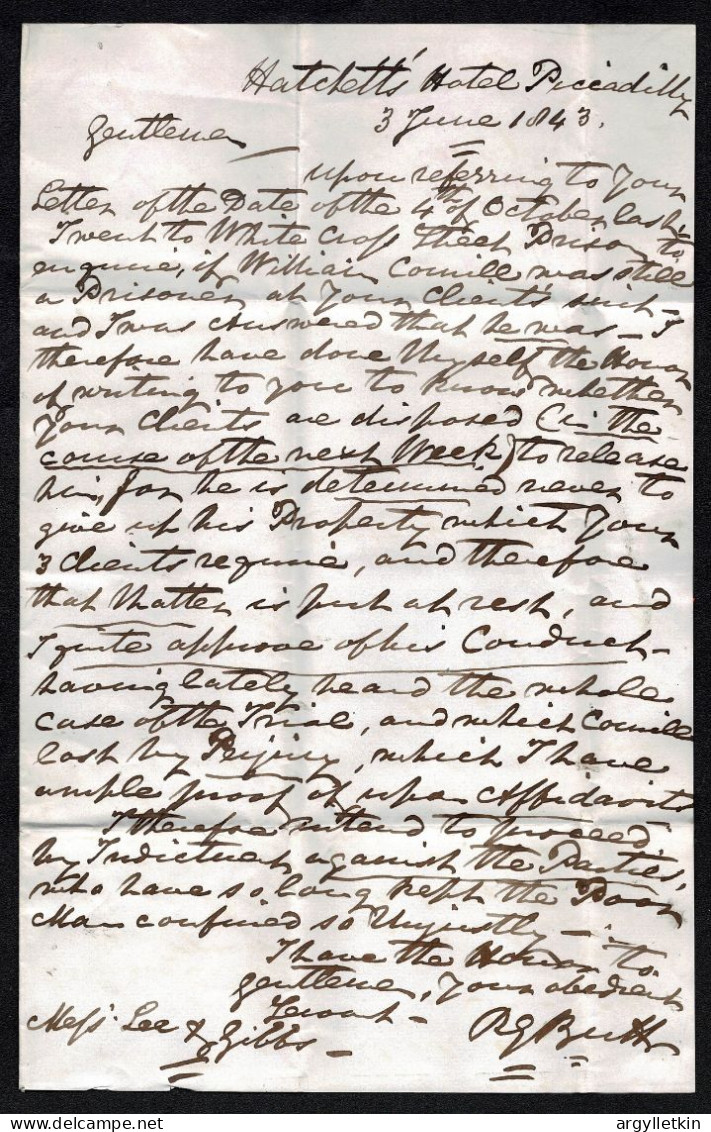 Hatchett's Hotel Piccadilly
3 June 1843.
Gentlemen
upon referring to Your
Letter of the Date of the 4th of October last,
I went to White Cross Street Prison to
enquire, if William Comill was still
a Prisoner at Your Clients suit –
and I was Answered that he was – I
therefore have done Myself the Honor
of writing to you to Know whether
Your Clients are disposed (in the
course of the next Week) to release
him, for he is determined never to
give up his Property which Your
3 Clients require, and therefore
that Matter is put at rest, and
I quite approve of his Conduct –
having lately heard the whole
case of the Trial, and which Comill
lost by Perjury, which I have
ample proof of upon Affidavits
I therefore intend to proceed
by Indictment against the Parties,
who have so long kept the Poor
Man confined so Unjustly –
I have the Honor to
Gentlemen, Your obedient
Servant –
Messrs. Lee & Gibbs –
argylletkin